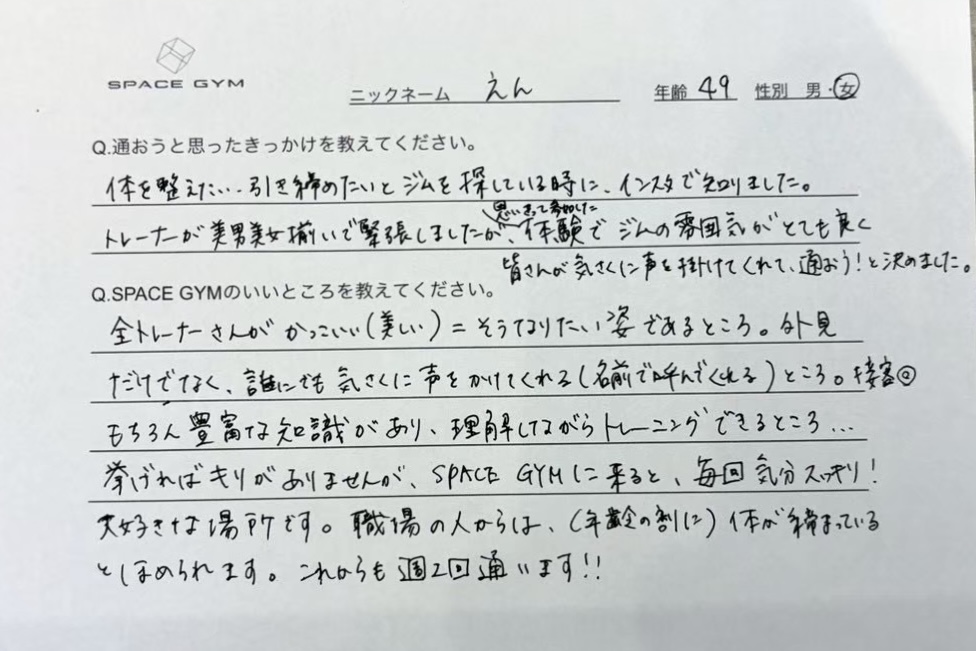 SPACE GYM
ニックネーム えん 年齢 49 性別 男・女
Q.通おうと思ったきっかけを教えてください。
体を整えたい…引き締めたいとジムを探している時に、インスタで知りました。
思いきって参加した
トレーナーが美男美女揃いで緊張しましたが、体験でジムの雰囲気がとても良く
皆さんが気さくに声を掛けてくれて、通おう!と決めました。
Q.SPACE GYMのいいところを教えてください。
全トレーナーさんがかっこいい(美しい)=そうなりたい姿であるところ。外見
だけでなく、誰にでも気さくに声をかけてくれる(名前で呼んでくれる)ところ。接客◎
もちろん豊富な知識があり、理解しながらトレーニングできるところ…
挙げればキリがありませんが、SPACE GYMに来ると、毎回気分スッキリ!
大好きな場所です。職場の人からは、(年齢の割に)体が締まっている
とほめられます。これからも週2回通います!!